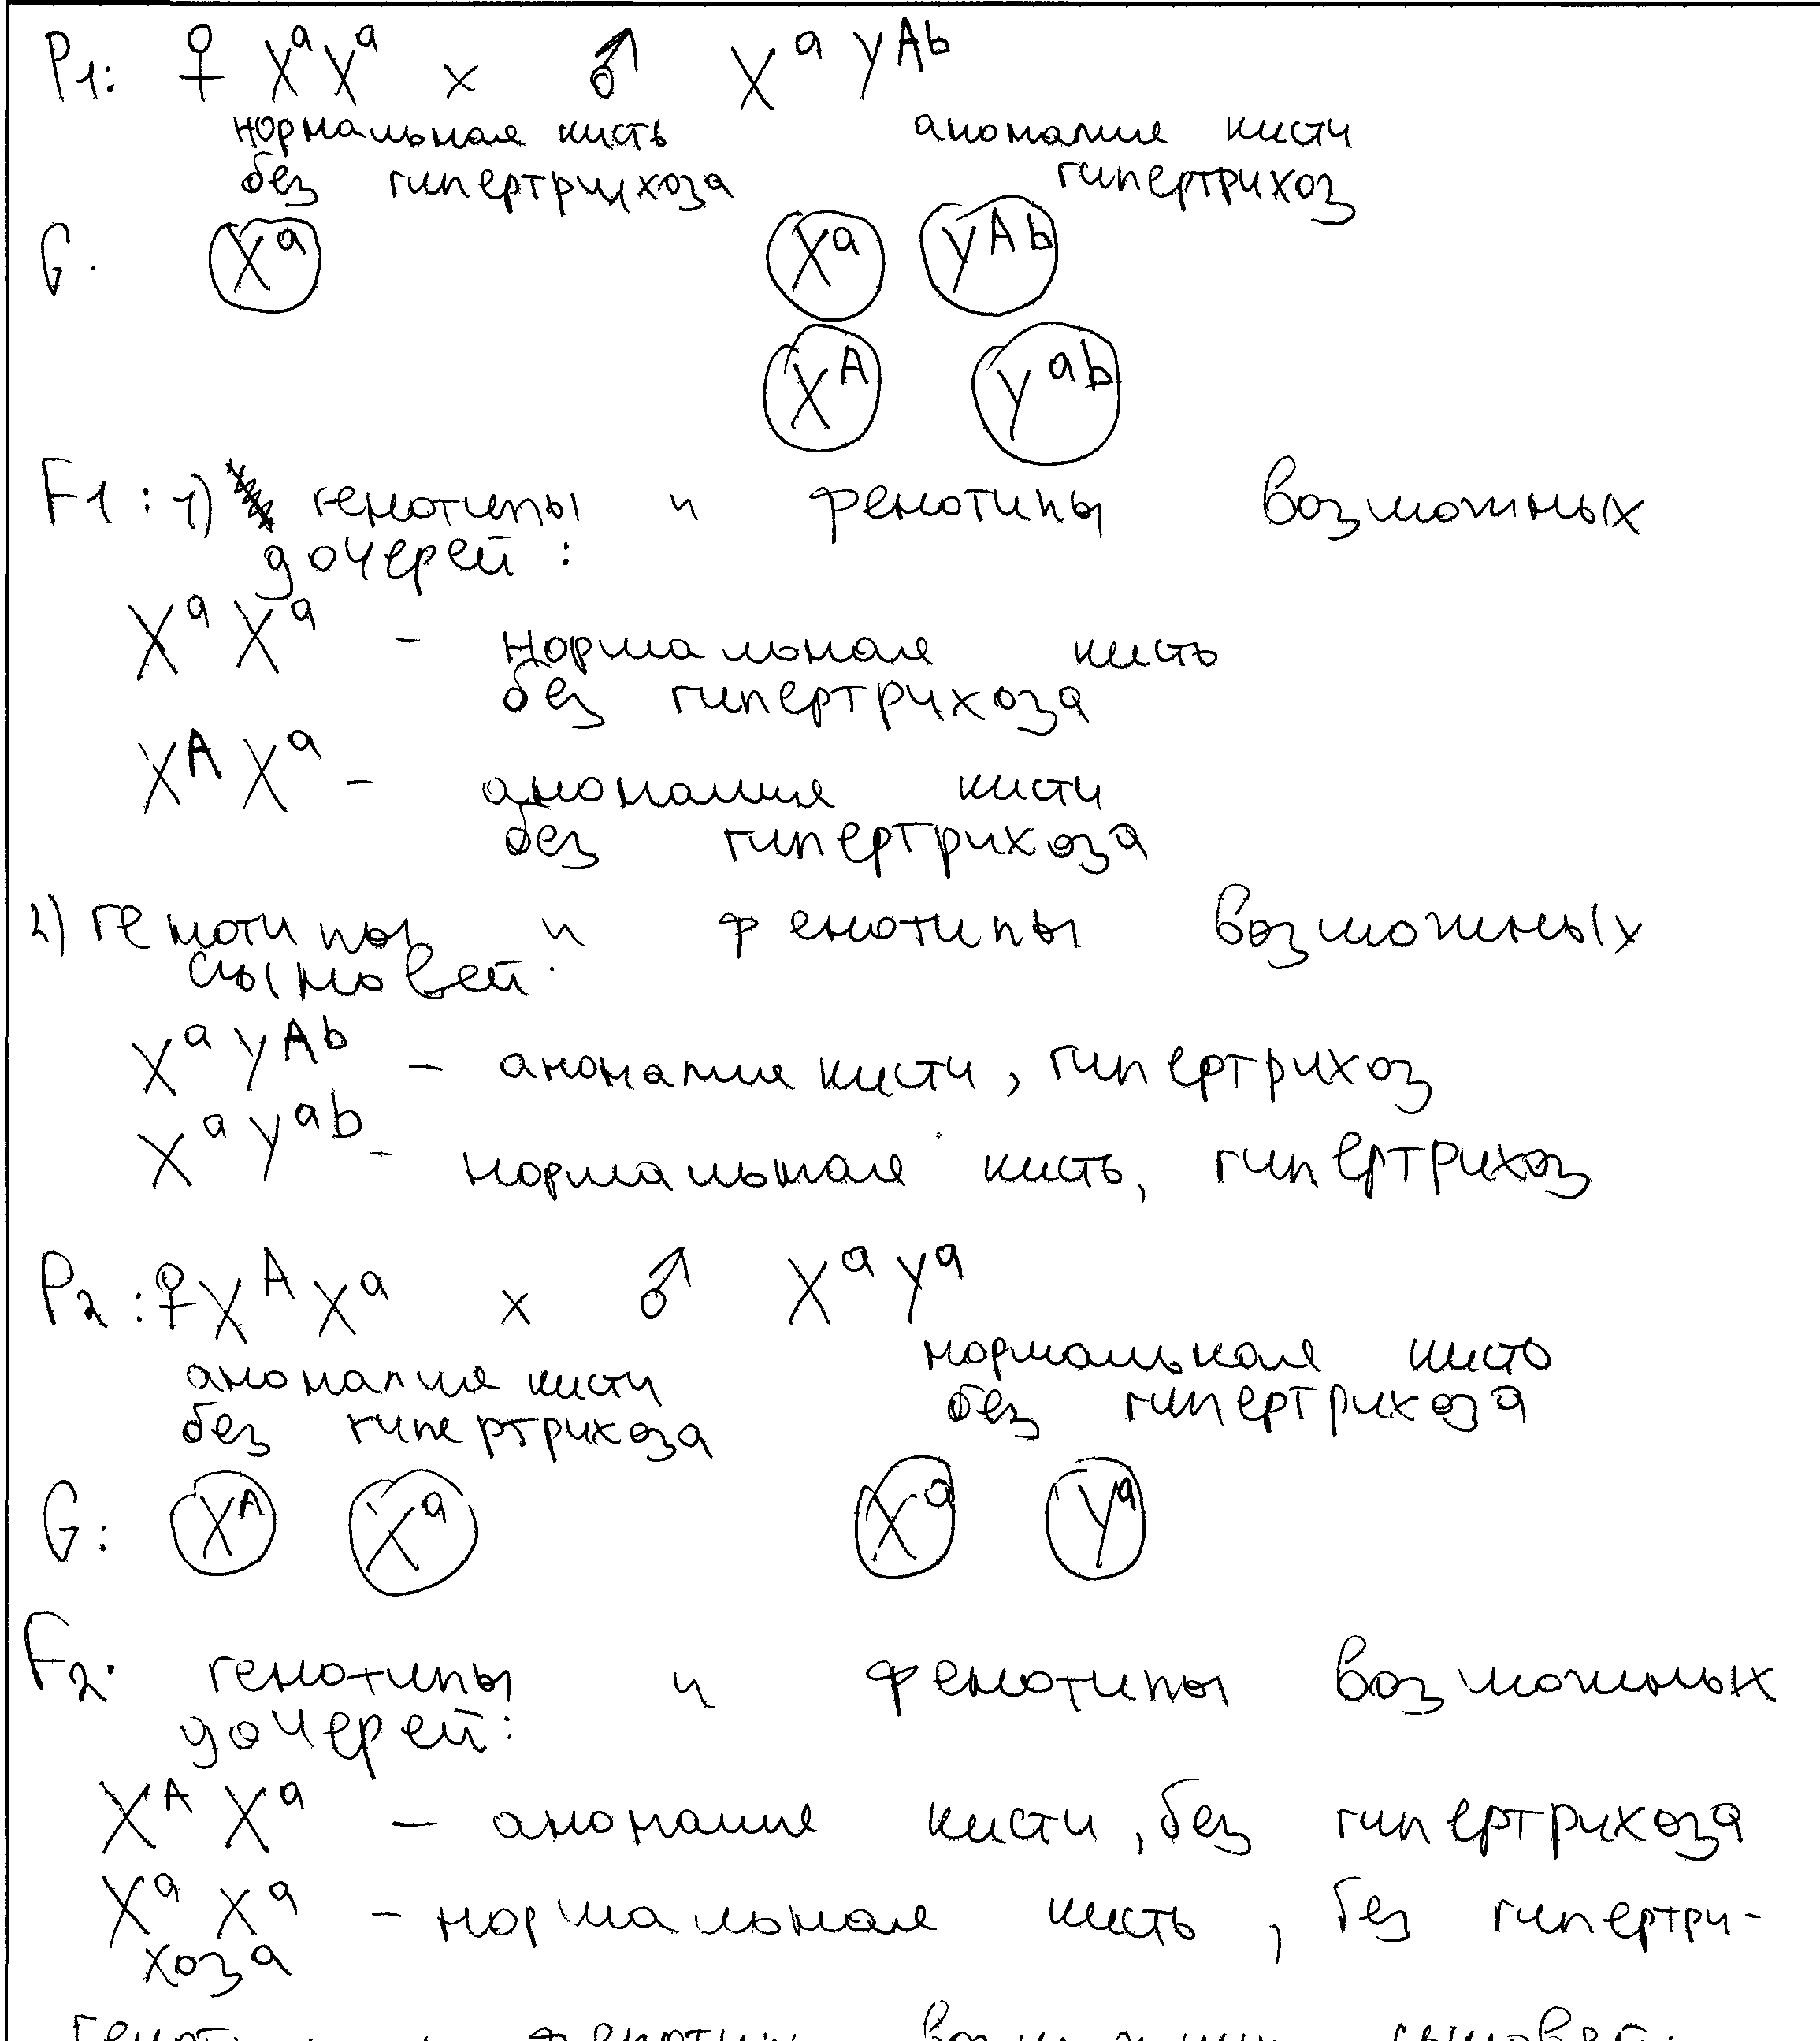 P1: ♀ XᵃXᵃ x ♂ XᵃYᴬᵇ
нормальная кисть аномалия кисти
без гипертрихоза гипертрихоз
G. Xᵃ Xᵃ Yᴬᵇ
Xᴬ Yᵃᵇ
F1: 1) генотипы и фенотипы возможных
дочерей:
XᵃXᵃ - нормальная кисть
без гипертрихоза
XᴬXᵃ - аномалия кисти
без гипертрихоза
2) генотипы и фенотипы возможных
сыновей:
XᵃYᴬᵇ - аномалия кисти, гипертрихоз
XᵃYᵃᵇ - нормальная кисть, гипертрихоз
P2: ♀XᴬXᵃ x ♂ XᵃYᵃ
аномалия кисти нормальная кисть
без гипертрихоза без гипертрихоза
G: Xᴬ Xᵃ Xᵃ Yᵃ
F2. генотипы и фенотипы возможных
дочерей:
XᴬXᵃ - аномалия кисти, без гипертрихоза
XᵃXᵃ - нормальная кисть, без гипертри-
хоза